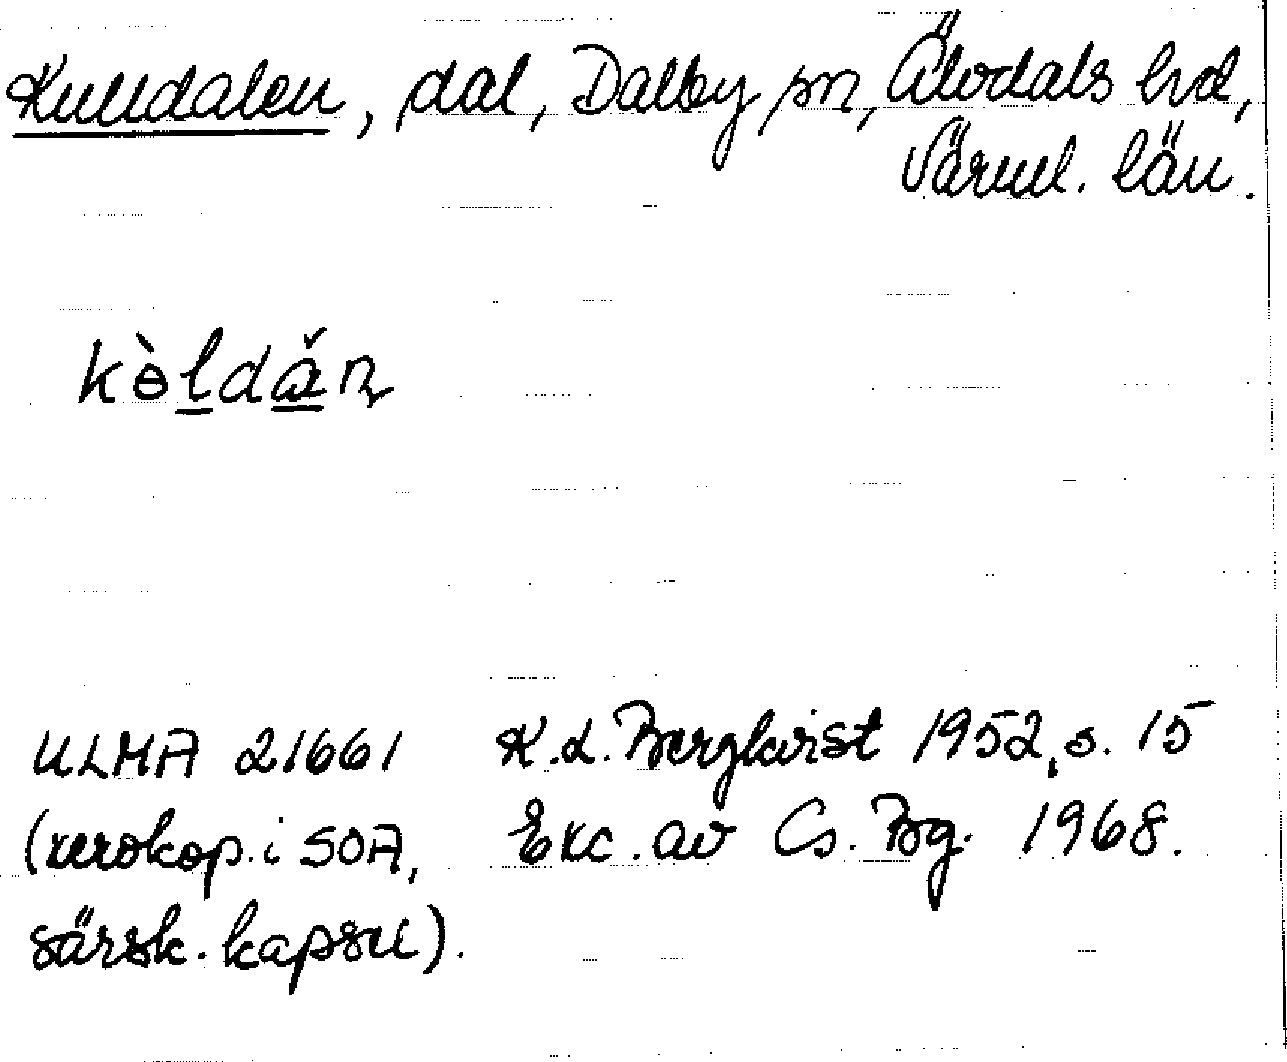 Kulldalen, dal, Dalby sn, Älvdals hd,
Värml. län.
kɵ̀ldăn̥
ULMA 21661 K.L. Bergkvist 1952, s. 15
(xerokop. i SOA, Exc. av Cs. Bg. 1968.
särsk. kapsel).